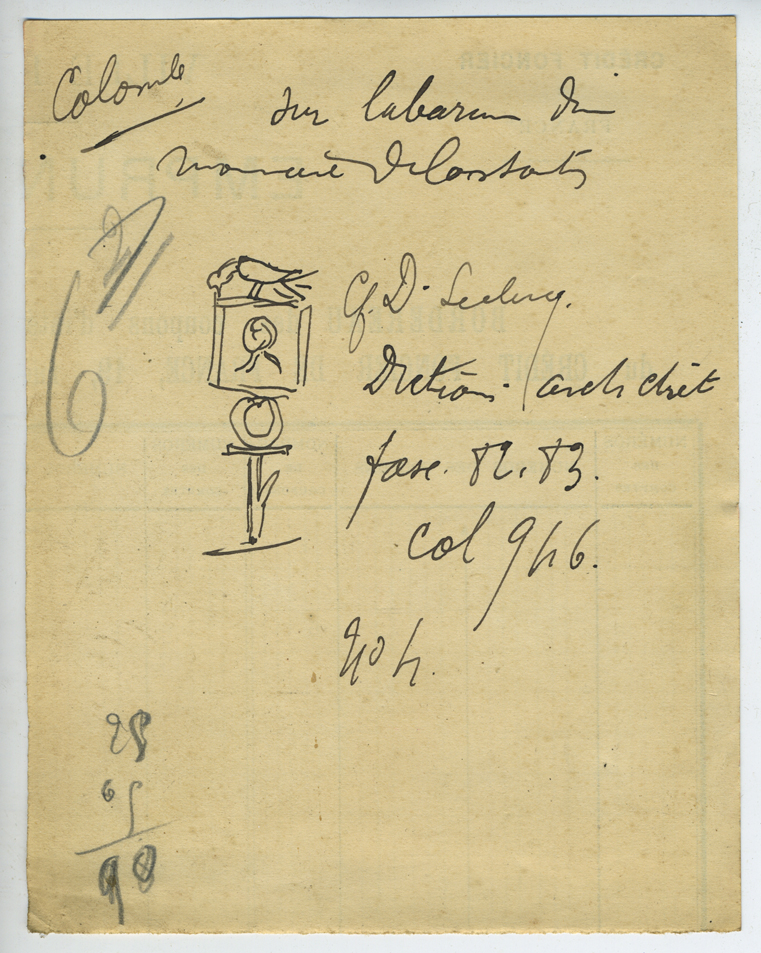 Colombe
sur labarum d'un
monnaie de Constant
Cf. D. Leclercq.
Diction. arch chrét
fasc. 82.83.
col 946.
No 4.
6
25
65
90